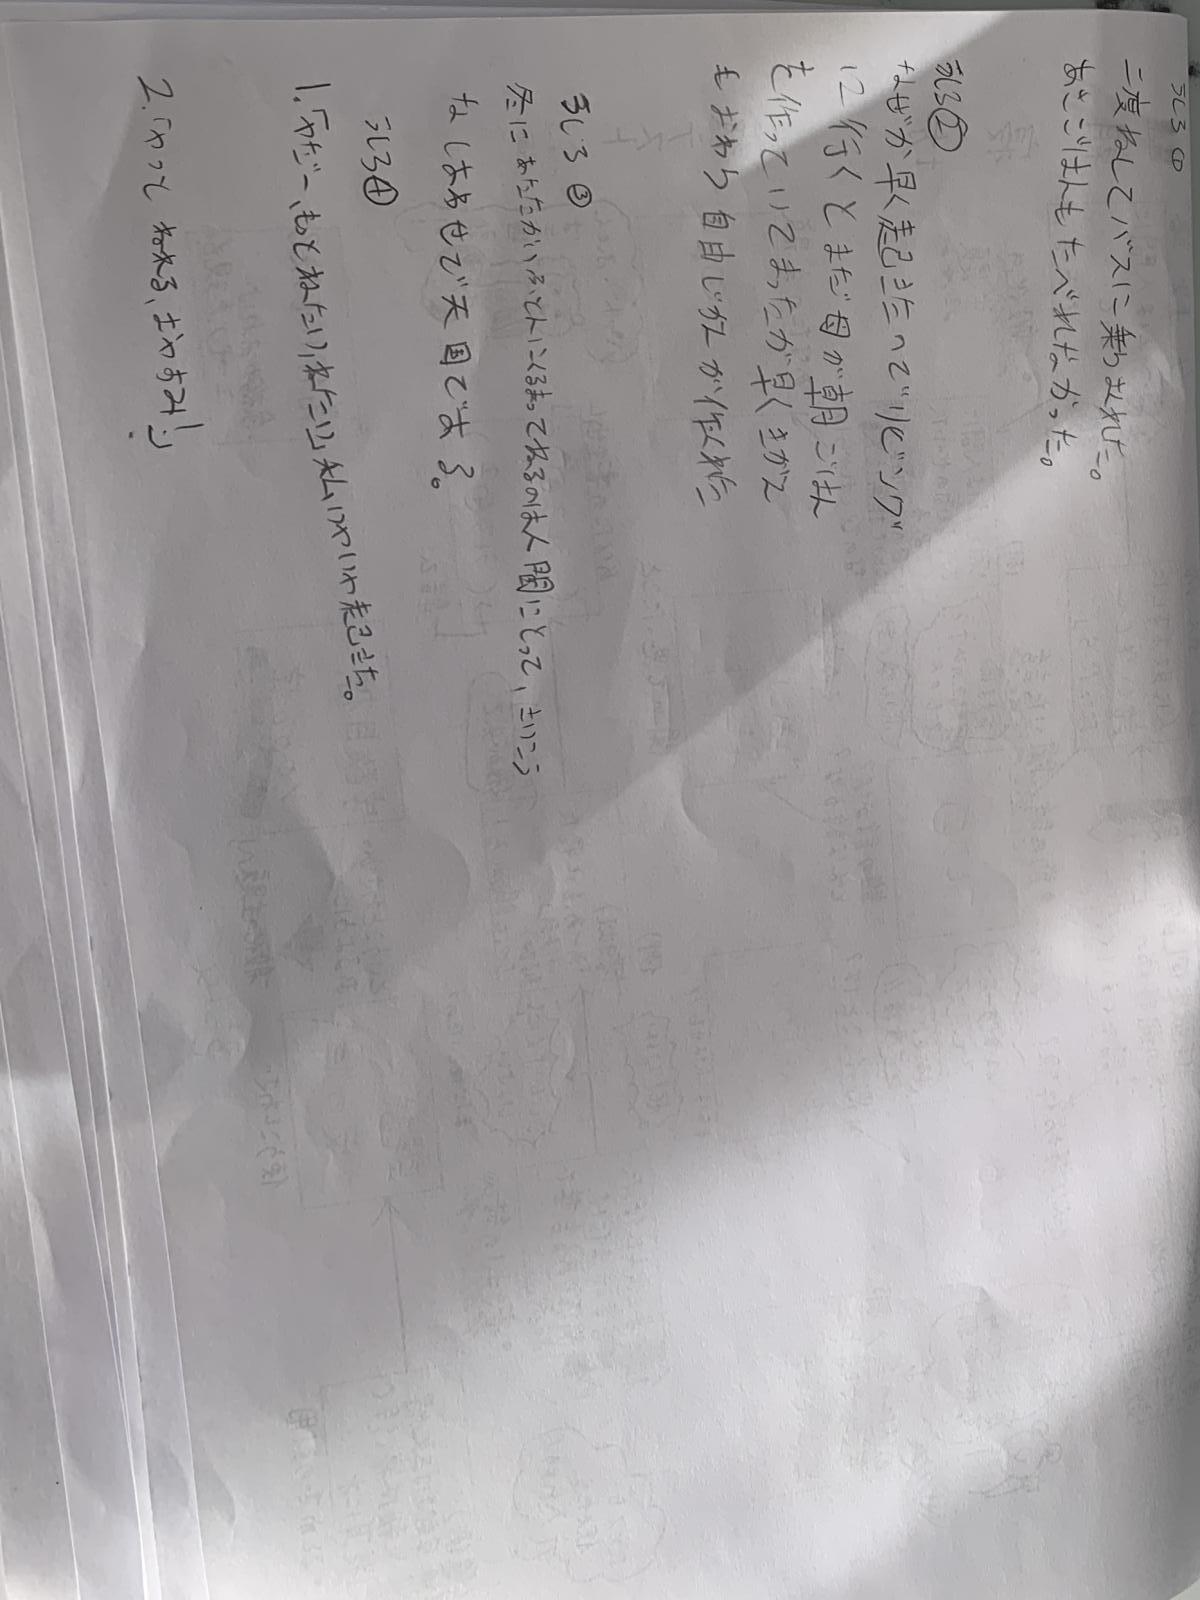 うしろ①
二度ねしてバスに乗りおくれた。
あさごはんもたべれなかった。
うしろ②
なぜか早く起きたのでリビング
に行くとまだ母が朝ごはん
を作っていてまったが早くきがえ
もおわり自由じかんが作れた
うしろ③
冬にあたたかいふとんにくるまってねるのは人間にとって、さいこう
なしあわせで天国である。
うしろ④
1.「やだー、もっとねたい、ねたい」私はいやいや起きた。
2.「やっとねれる、おやすみ!」